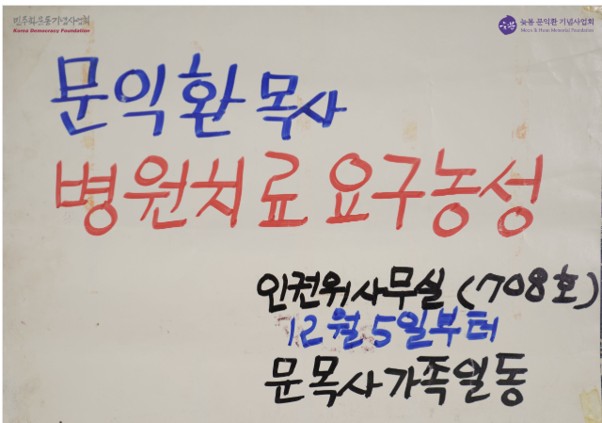 민주화운동기념사업회
Korea Democracy Foundation
늦봄 문익환 기념사업회
Moon Ik Hwan Memorial Foundation
문익환 목사
병원치료 요구농성
인권위사무실 (708호)
12월 5일부터
문목사가족일동